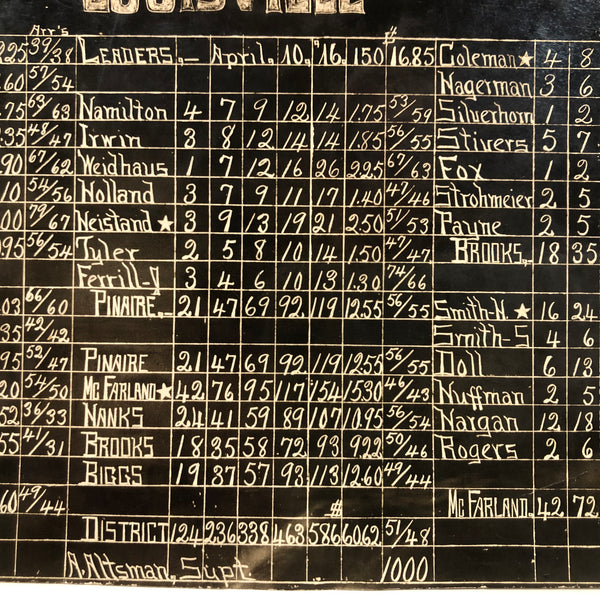 LOUISVILLE
Arr's $
.225 39/38 LEADERS,- April, 10, '16, 150 16.85 Coleman★ 4 8
.60 57/54 Nagerman 3 6
.75 63/63 Namilton 4 7 9 12 14 1.75 53/59 Silverhorn 1 2
.35 48/47 Irwin 3 8 12 14 14 1.85 56/55 Stivers 5 7
.90 67/62 Weidhaus 1 7 12 16 26 2.25 67/63 Fox 1 2
.10 54/56 Nolland 3 7 9 11 17 1.40 47/46 Strohmeier 2 5
.00 79/67 Neistand★ 3 9 13 19 21 2.50 51/53 Payne 2 5
.95 56/54 Tyler 2 5 8 10 14 1.50 47/47 BROOKS,- 18 35
Ferrill-g 3 4 6 10 13 1.30 74/66
.03 66/60 PINAIRE,- 21 47 69 92 119 12.55 56/55 Smith-N.★ 16 24
.35 42/42 Smith-S 4 6
.95 52/47 PINAIRE 21 47 69 92 119 12.55 56/55 Doll 6 13
.20 54/50 MCFARLAND★ 42 76 95 117 154 15.30 46/43 Nuffman 2 5
.52 36/33 NANKS 24 41 59 89 107 10.95 56/54 Nargan 12 18
.55 41/31 BROOKS 18 35 58 72 93 9.22 50/46 Rogers 2 6
BIGGS 19 37 57 93 113 12.60 49/44
.60 49/44 $ MCFARLAND,- 42 72
DISTRICT 124 236 338 463 586 60.62 51/48
A. Altsman, Supt. 1000